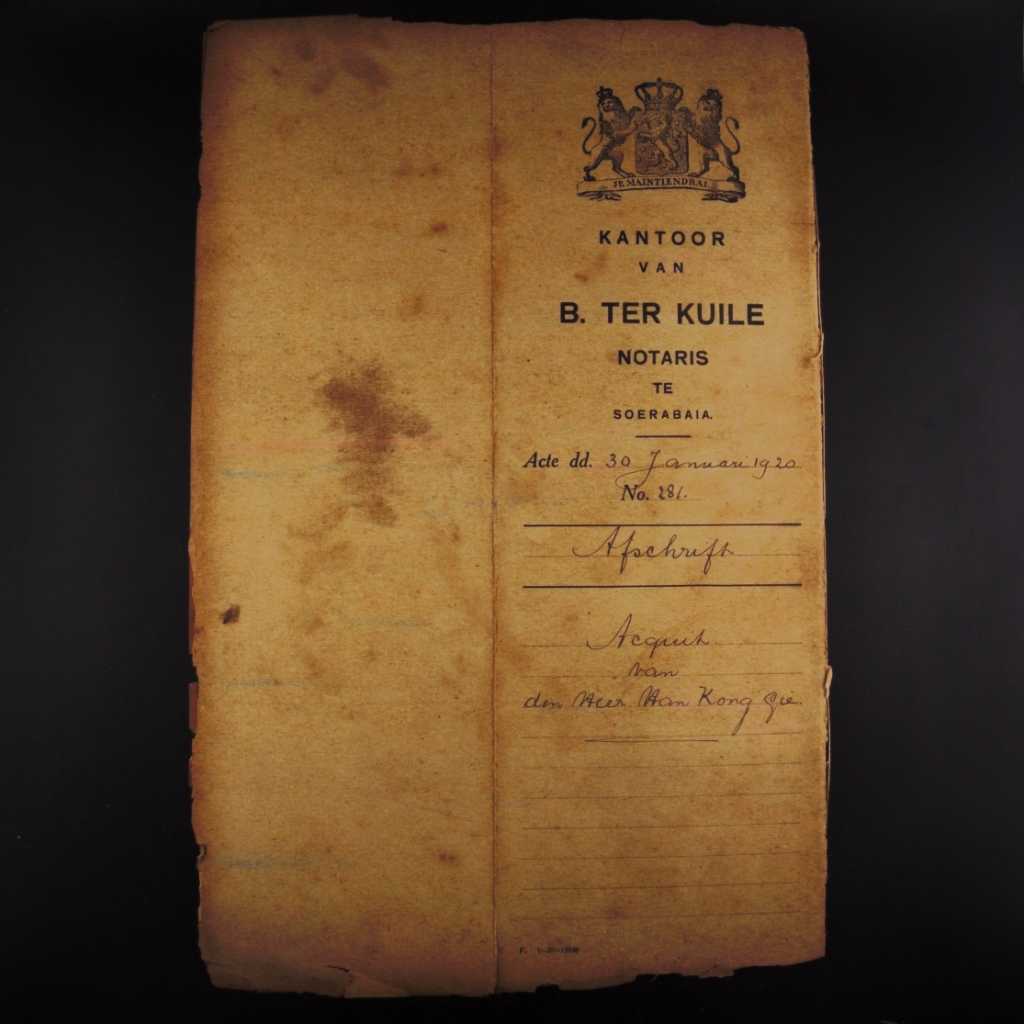 JE MAINTIENDRAI
KANTOOR
VAN
B. TER KUILE
NOTARIS
TE
SOERABAIA.
Acte dd. 30 Januari 1920
No. 281.
Afschrift
Acquit
van
den Heer Han Kong Gie.
F.